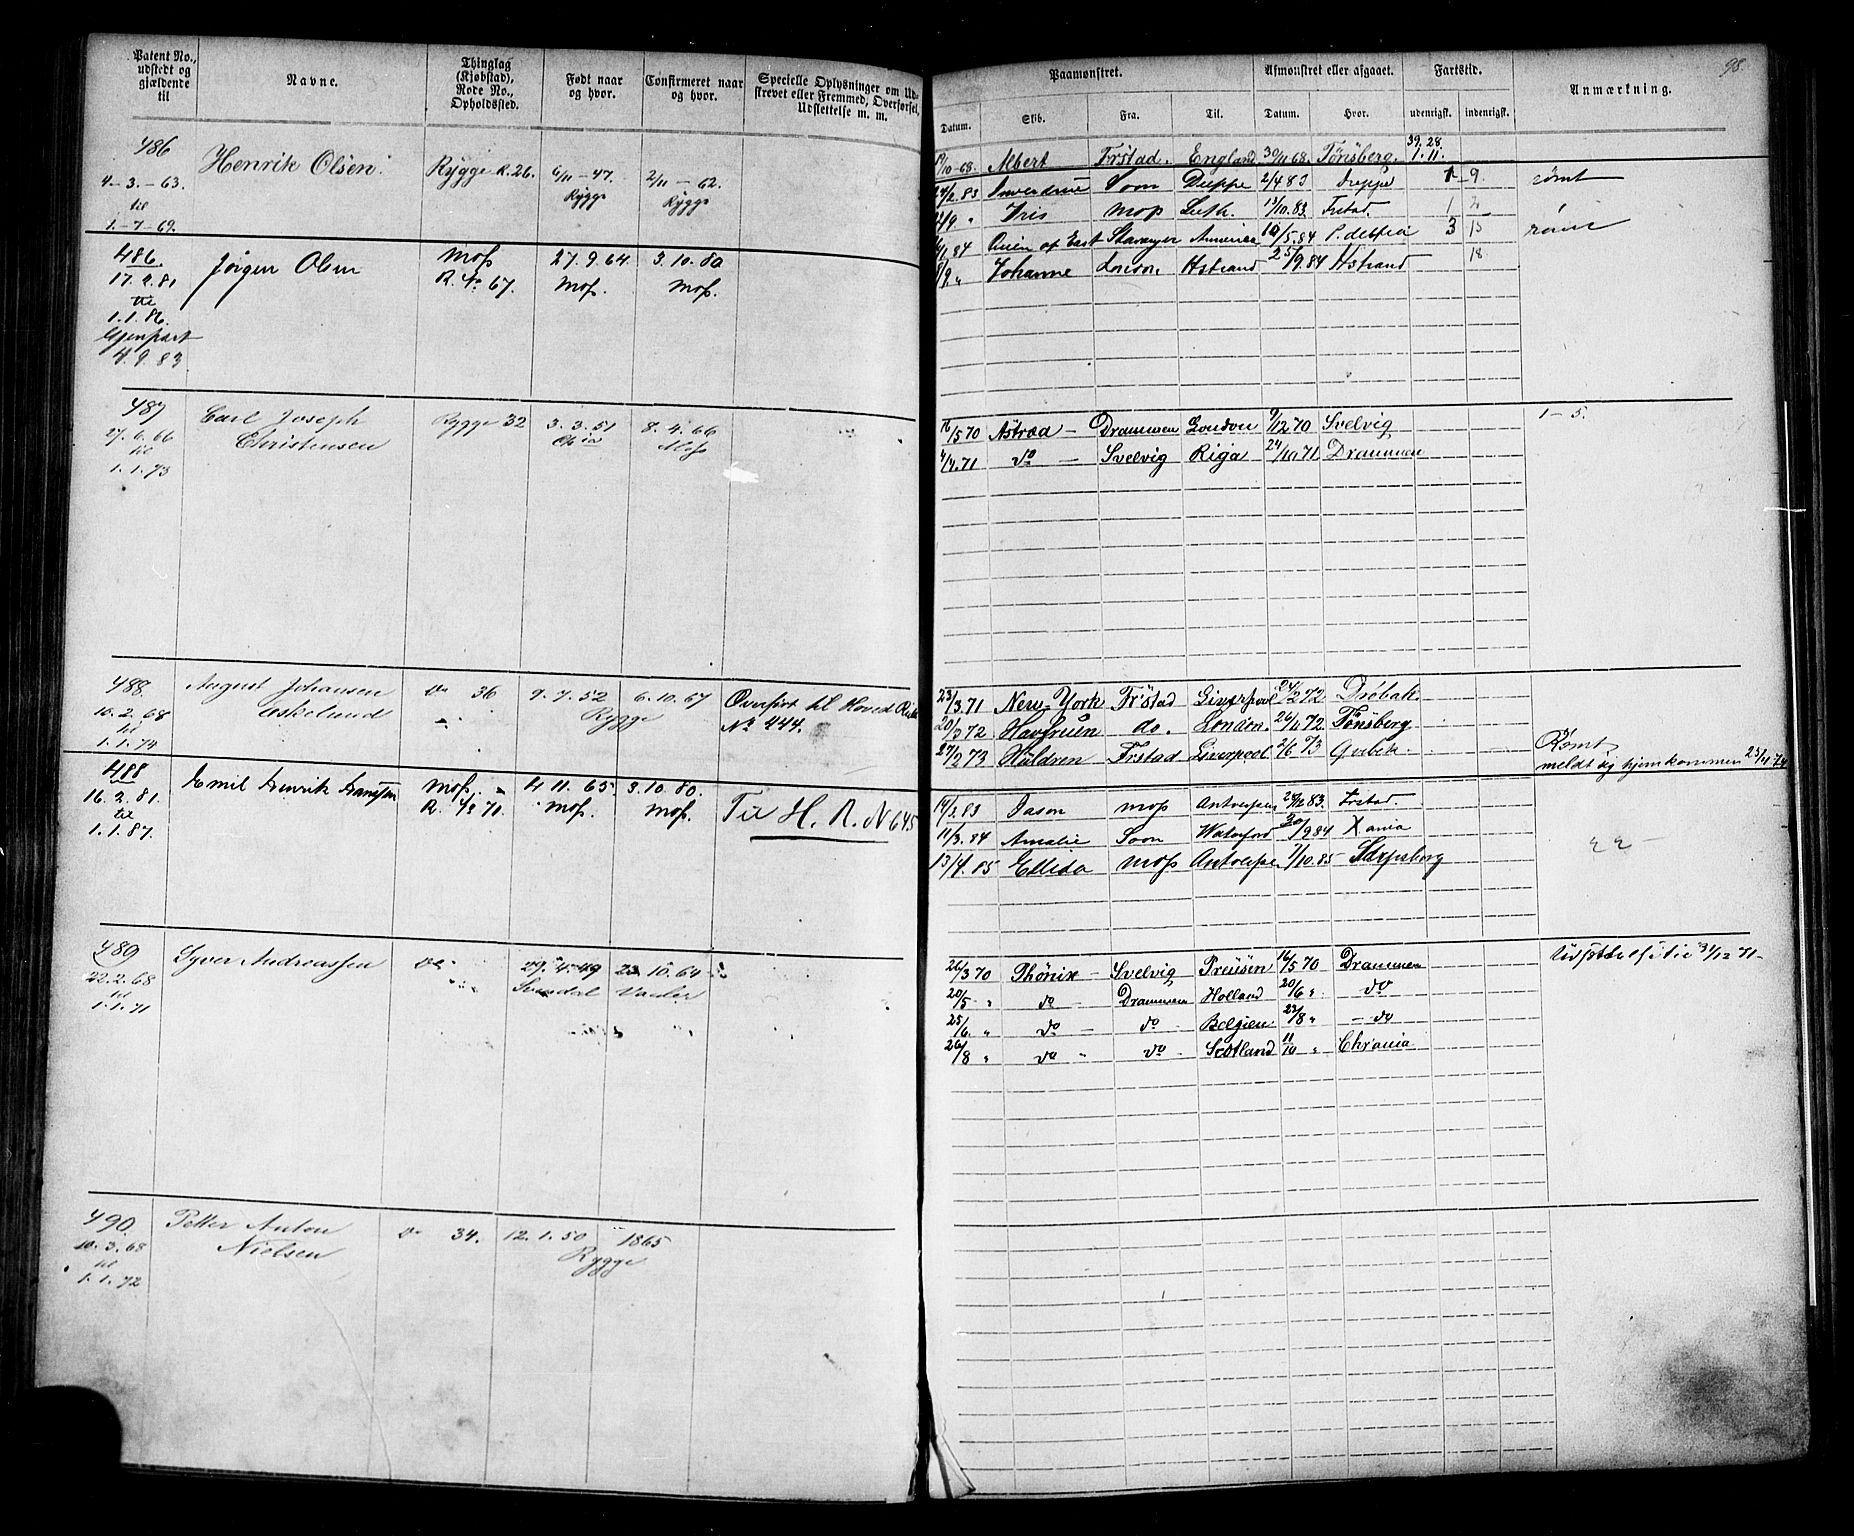 98.
Patent No., udstedt og gjældende til
Navne.
Thinglag (Kjøbstad), Rode No., Opholdssted.
Født naar og hvor.
Confirmeret naar og hvor.
Specielle Oplysninger om Udskrevet eller Fremmed, Overførsel, Udslettelse m. m.
Paamønstret.
Afmønstret eller afgaaet.
Fartstid.
Anmærkning.
Datum. Skib. Fra. Til. Datum. Hvor. udenrigsk. indenrigsk.
486 Henrik Olsen. Rygge R. 26. 6/11 - 47. 2/11 - 62.
4-3.-63. Rygge Rygge
til
1.-7-69.
39. 28.
/10-68. Albert Frstad. England 30/11 68. Tönsberg. 1. 11.
486. Jørgen Olsen Moss 27.9.64. 3.10.80
17.2.81 R. No 67. Moss. Moss.
til
1.1.86.
Gjenpart
4.9.83
24/2.83 Soon Dieppe 2/4 83 Dieppe 1 9. rømt
/9 " Iris Moss Leith. 13/10.83. Frstad. 1 2
/1.84 Queen of East Stavanger Amerika /5.84 3 15 rømt
/9. " Johanne London. Hstrand 25/9.84 Hstrand 18
487 Carl Joseph Rygge 32 3.3.51 8.4.66
27.6.66 Christensen Chria Moss
til
1.1.73
16/5 70 Astræa - Drammen London 9/12 70 Svelvig 1-5.
4/4.71 do - Svelvig Riga 24/10 71 Drammen
488. August Johansen Do 36 9.7.52 6.10.67 Overført til Hoved Rullen
10.2.68 Askelund Rygge No 444.
til
1.1.74
23/3.71 New-York Frstad Liverpool 24/2 72 Dröbak
20/3 72 Havfruen do. London. 26/11 72 Tönsberg
27/2 73 Huldren Frstad Liverpool 2/6 73 Rømt
meldt sig hjemkommen 25/11 74
488 Emil Henrik Hansen Moss. 4.11.65. 3.10.80.
16.2.81. R. No 71. Moss. Moss. Til H. R. N 645
til
1.1.87.
14/3.83 Jason Moss Antverpen 24/12 83. Frstad.
11/3.84 Amalie Soon Waterford 30/9 84 Xania
13/4.85 Ellida Moss Antverpen 7/10.85 Sarpsborg
489 Syver Andreassen do. 29.4.49 23.10.64
22.2.68 Svindal Vaaler
til
1.1.71
26/3 70 Phönix - Svelvig Preusen 16/5 70 Drammen Udslettelse i til 31/12 71-
20/5 " do - Drammen Holland 20/6 " do
25/6. " do - do Belgien 22/8 " - do
26/8 " do " do Scotland 11/10 " Chrania
490. Petter Anton Do 34. 12.1.50 1865
10.3.68 Nielsen Rygge
til
1.1.72